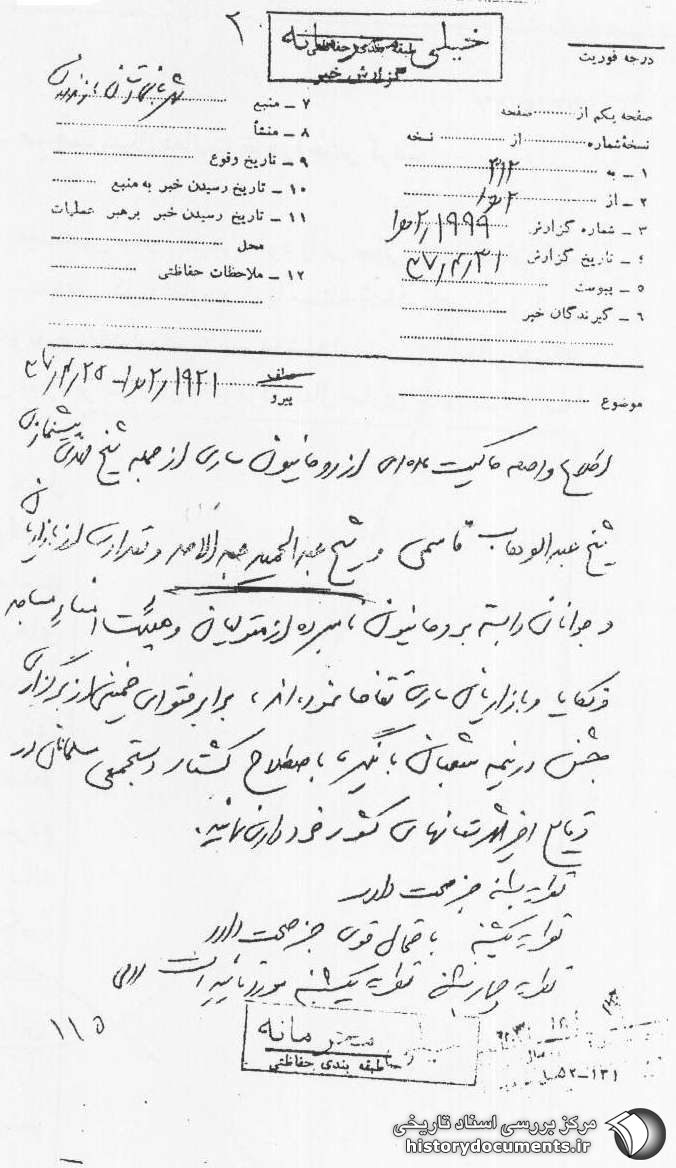 ۲
خیلی محرمانه
طبقه بندی حفاظتی
گزارش خبر
درجه فوریت
صفحه یکم از صفحه
نسخهٔ شماره از نسخه
۱ ـ به ۳۱۲
۲ ـ از ۲ ه‍ ۱
۳ ـ شماره گزارش ۱۹۹۹ / ۲ ه‍ ۱
۴ ـ تاریخ گزارش ۳۷/۴/۳۱
۵ ـ پیوست
۶ ـ گیرندگان خبر
۷ ـ منبع
۸ ـ منشأ
۹ ـ تاریخ وقوع
۱۰ ـ تاریخ رسیدن خبر به منبع
۱۱ ـ تاریخ رسیدن خبر برهبر عملیات
محل
۱۲ ـ ملاحظات حفاظتی
موضوع
پیرو ۱۹۲۱ / ۲ ه‍ ۱ - ۳۷/۴/۲۵
اطلاع واصله حاکیست عده‌ای از روحانیون ساری از جمله شیخ پیشنمازی
شیخ عبدالوهاب قاسمی و شیخ عبدالحمید عبدالاحد و تعدادی از بازاریان
و جوانان وابسته بروحانیون نامبرده از متولیان و هیئت امناء مساجد
و تکایا و بازاریان ساری تقاضا نموده‌اند، برابر فتوای خمینی از برگزاری
جشن در نیمه شعبان بانگیزه باصطلاح کشتار دستجمعی مسلمانان در
وقایع اخیر شهرستانهای کشور خودداری نمایند.
نظریه شنبه خبر صحت دارد
نظریه یکشنبه باحتمال قوی خبر صحت دارد
نظریه چهارشنبه نظریه یکشنبه مورد تائید است
۱۱۵
محرمانه
طبقه بندی حفاظتی
سال
۱۳۱-۵۲
مرکز بررسی اسناد تاریخی
historydocuments.ir